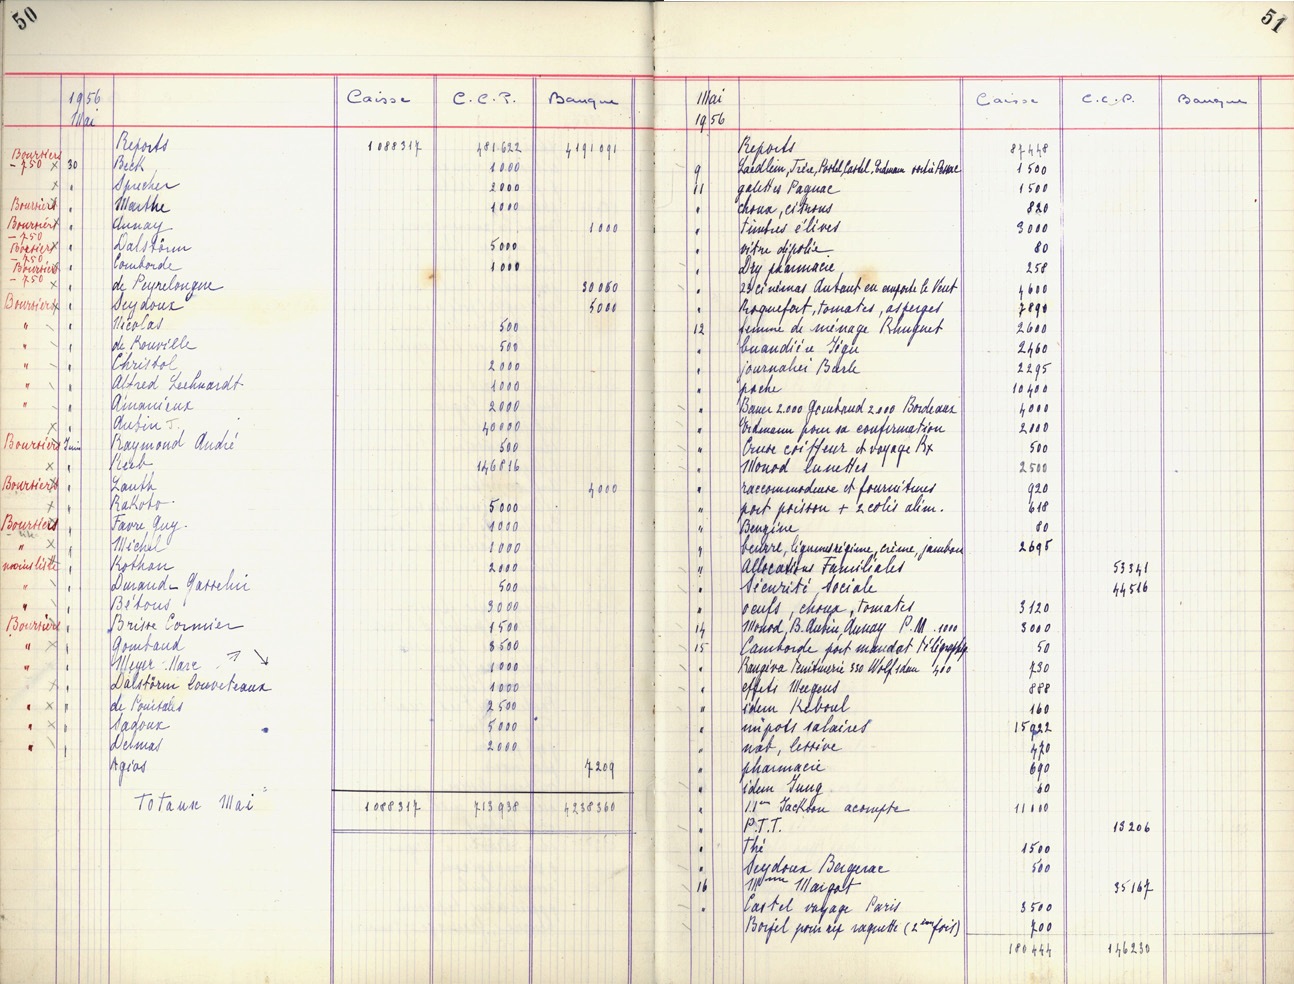 50
1956 Caisse C.C.P. Banque
Mai
Reports 1088317 481622 4191091
Boursiers - 750 × 30 Beck 1000
× " Sprecher 2000
Boursiers × " Marthe 1000
Boursiers - 750 × " Aunay 1000
Boursiers - 750 × " Dalström 5000
Boursiers - 750 × " Comborde 1000
× " de Peyrelongue 30060
Boursiers × " Seydoux 5000
" " Nicolas 500
" " de Rouville 500
" " Christol 2000
" " Alfred Leenhardt 1000
" " Amanieux 2000
× " Aubin J. 40000
Boursiers Juin Raymond André 500
× " Keeb 146816
Boursiers × " Lauth 4000
× " Rakoto. 5000
Boursiers " Favre Guy. 1000
" × " Michel 1000
moins liste " Rothan 2000
" " Durand-Gasselin 500
" " Bétous 3000
Boursiers " Brisse Cormier 1500
" " Gombaud 3500
" " Meyer - Marc 1000
× " Dalström louveteaux 1000
" × " de Pourtalès 2500
" × " Sadoux 5000
" " Delmas 2000
Agios 7209
Totaux Mai 1088317 713938 4238360
51
Mai Caisse C.C.P. Banque
1956
Reports 87448
9 Frère, Castel, Erdmann 1500
11 galettes Pagnac 1500
" choux, citrons 820
" timbres élèves 3000
" vitre dépolie 80
" Dry pharmacie 258
" 23 cinémas Autant en emporte le Vent 4600
" Roquefort, tomates, asperges 7890
12 femme de ménage Rhuguet 2600
" buandière Ségu 2460
" journalier Barle 2295
" poche 10400
" Bauer 2.000 Gombaud 2000 Bordeaux 4000
" Erdmann pour sa confirmation 2000
" Cruse coiffeur et voyage Bx 500
" Monod lunettes 2500
" raccommodeuse et fournitures 920
" port poisson + 2 colis alim. 618
" Benzine 80
" beurre, légumes régime, crème, jambon 2695
" Allocations Familiales 53341
" Sécurité Sociale 44516
" oeufs, choux, tomates 3120
14 Monod, B. Aubin, Aunay P.M. 1000 3000
15 Camborde port mandat télégraph. 50
" 330 Wolfsdon 400 730
" effets Mergens 888
" idem Reboul 160
" impots salaires 15922
" nat, lessive 470
" pharmacie 690
" idem Jung 60
" Jackson acompte 11000
" P.T.T. 13206
" Thé 1500
" Seydoux Bergerac 500
16 Mme Margot 35167
" Castel voyage Paris 3500
pour rép raquette (2ème fois) 700
180444 146230